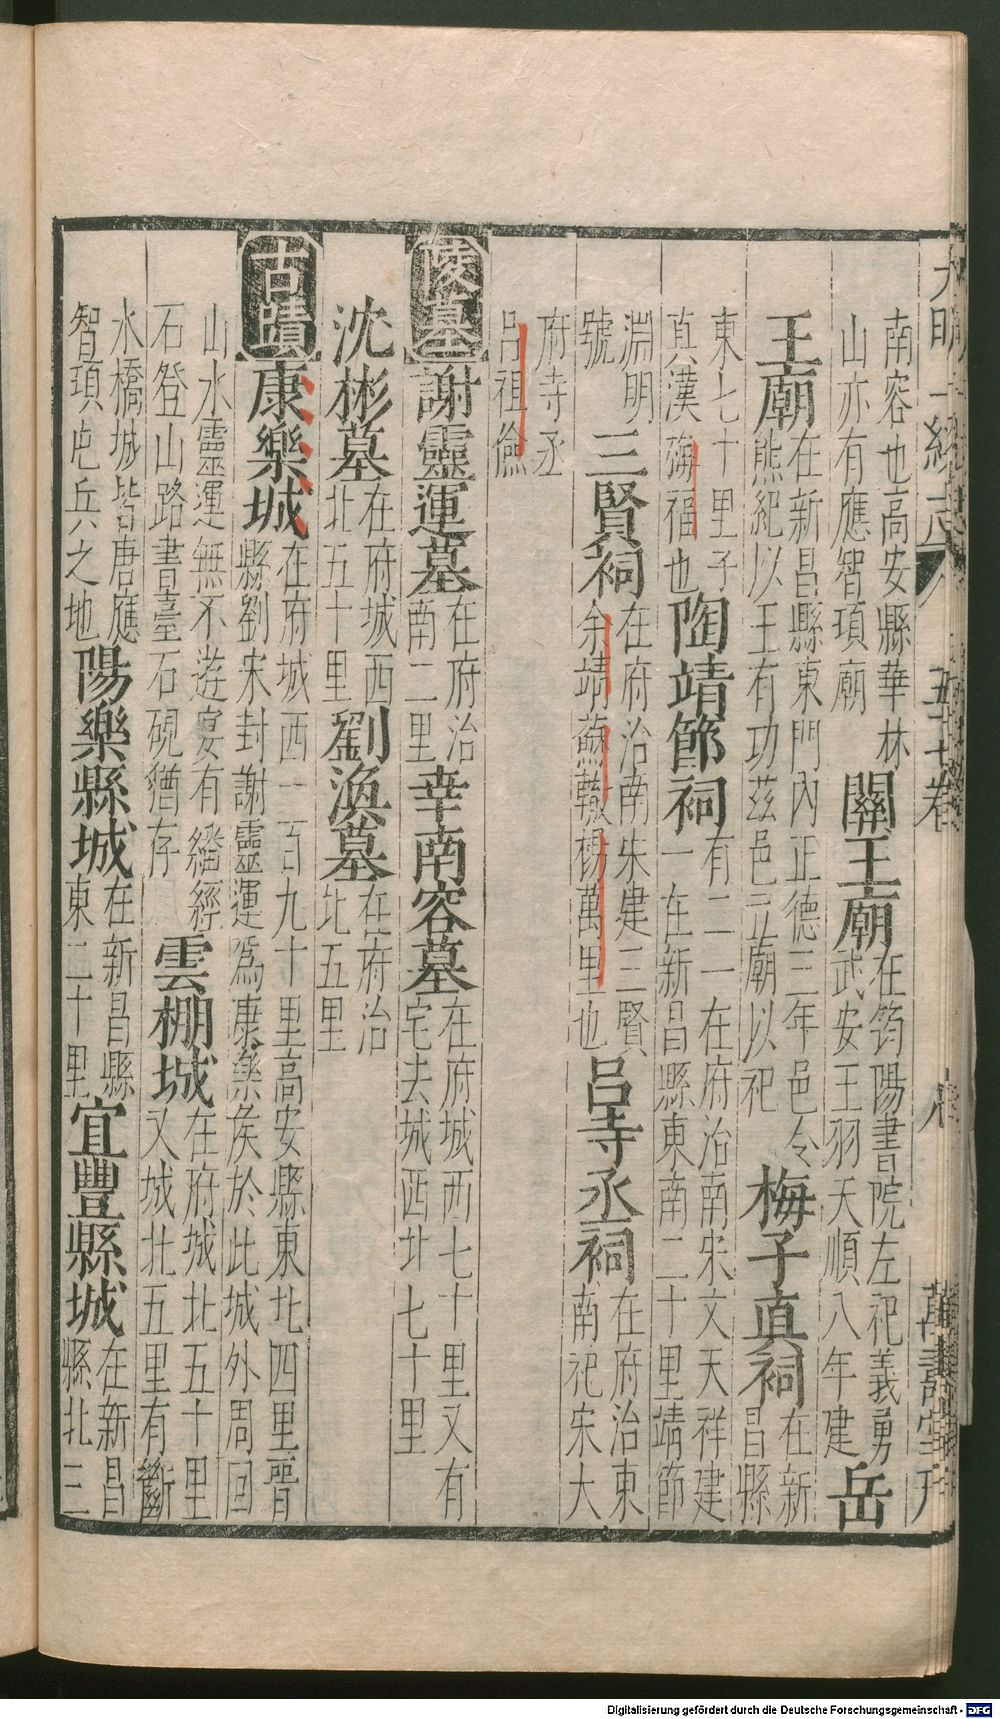 大明一統志 五十七卷 萬壽堂刊
南容也高安縣華林山亦有應智項廟 關王廟 在筠陽書院左祀義勇武安王羽天順八年建 岳
王廟 在新昌縣東門內正德三年邑令熊紀以王有功茲邑立廟以祀 梅子真祠 在新昌縣
東七十里子真漢梅福也 陶靖節祠 有二一在府治南宋文天祥建一在新昌縣東南二十里靖節
淵明號 三賢祠 在府治南朱建三賢余靖蘇轍楊萬里也 呂寺丞祠 在府治東南祀宋大
府寺丞呂祖儉
陵墓 謝靈運墓 在府治南二里 幸南容墓 在府城西七十里又有宅去城西北七十里
沈彬墓 在府城西北五十里 劉渙墓 在府治北五里
古蹟 康樂城 在府城西一百九十里高安縣東北四里晉縣劉宋封謝靈運爲康樂侯於此城外周回
山水靈運無不遊宴有繙經石登山路書臺石硯猶存 雲棚城 在府城北五十里又城北五里有斷
水橋城皆唐應智項屯兵之地 陽樂縣城 在新昌縣東二十里 宜豐縣城 在新昌縣北三
Digitalisierung gefördert durch die Deutsche Forschungsgemeinschaft - DFG